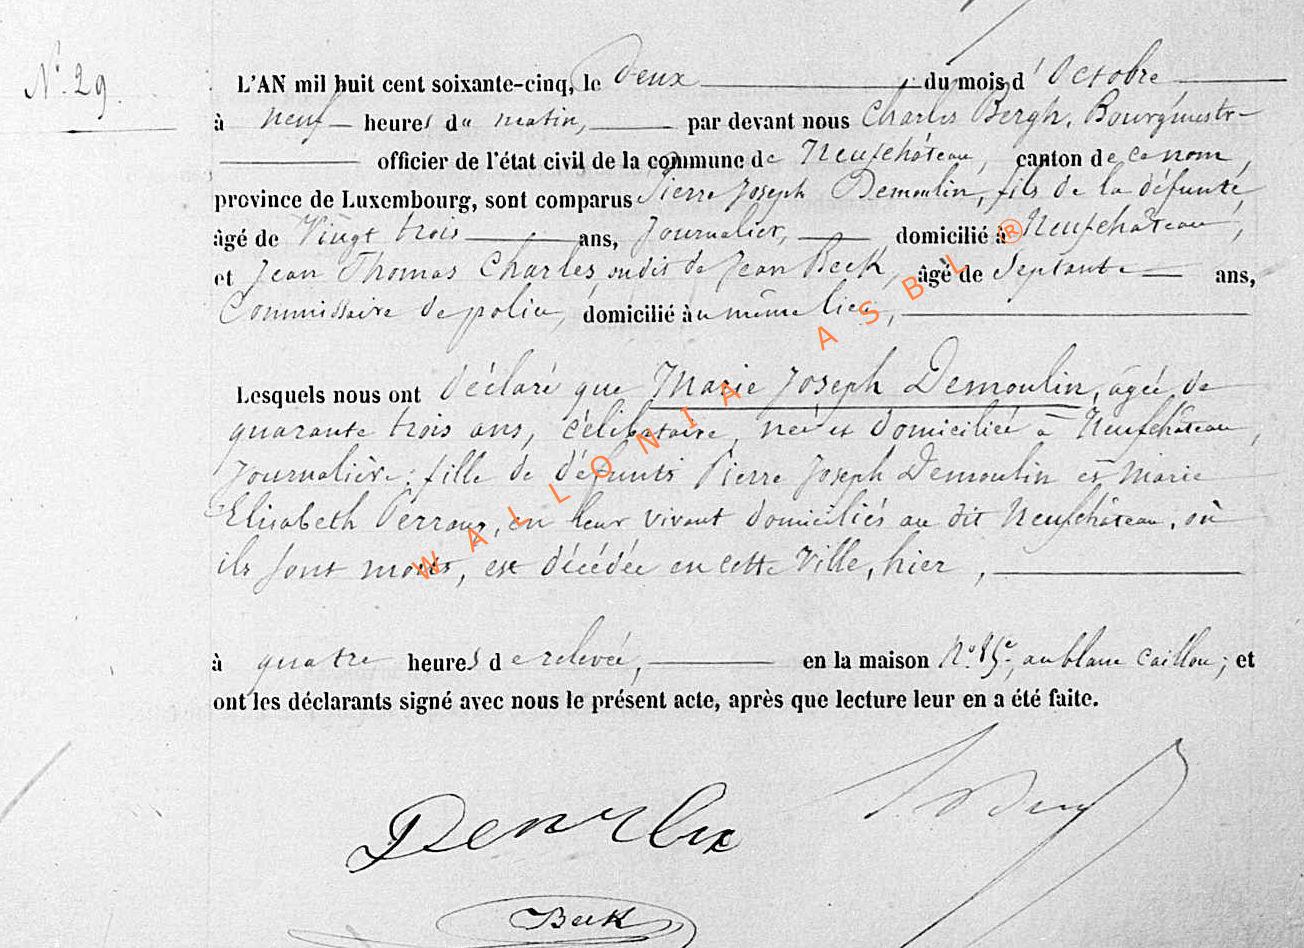 N.º 29.
L'AN mil huit cent soixante-cinq, le deux du mois d'Octobre
à neuf heures du matin, par devant nous Charles Bergh, Bourgmestre
officier de l'état civil de la commune de Neufchâteau, canton de ce nom,
province de Luxembourg, sont comparus Pierre Joseph Demoulin, fils de la défunte,
âgé de vingt trois ans, Journalier, domicilié à Neufchâteau,
et Jean Thomas Charles, ou dit de Jean Beck, âgé de septante ans,
Commissaire de police, domicilié au même lieu,
Lesquels nous ont déclaré que Marie Joseph Demoulin, âgée de
quarante trois ans, célibataire, née et domiciliée à Neufchâteau,
Journalière; fille de défunts Pierre Joseph Demoulin et Marie
Elisabeth en leur vivant domiciliés au dit Neufchâteau, où
ils sont morts, est décédée en cette ville, hier,
à quatre heures de relevée, en la maison N.º au blanc caillou; et
ont les déclarants signé avec nous le présent acte, après que lecture leur en a été faite.
Beck
WALLONIA ASBL ®